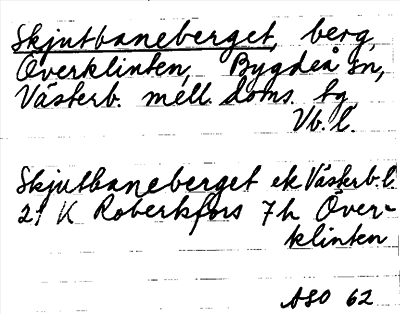 Skjutbaneberget, berg,
Överklinten, Bygdeå sn,
Västerb. mell. doms. tg
Vb. l.
Skjutbaneberget ek Västerb. l.
21 K Robertsfors 7h Över-
klinten
ASO 62